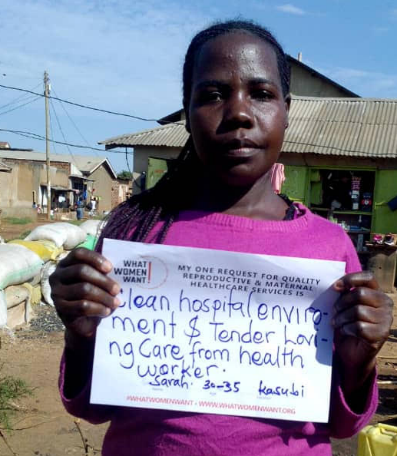 WHAT
WOMEN
WANT!
MY ONE REQUEST FOR QUALITY
REPRODUCTIVE & MATERNAL
HEALTHCARE SERVICES IS
Clean hospital enviro-
ment & Tender Lovi-
ng Care from health
worker.
Sarah. 30-35 Kasubi
#WHATWOMENWANT • WWW.WHATWOMENWANT.ORG